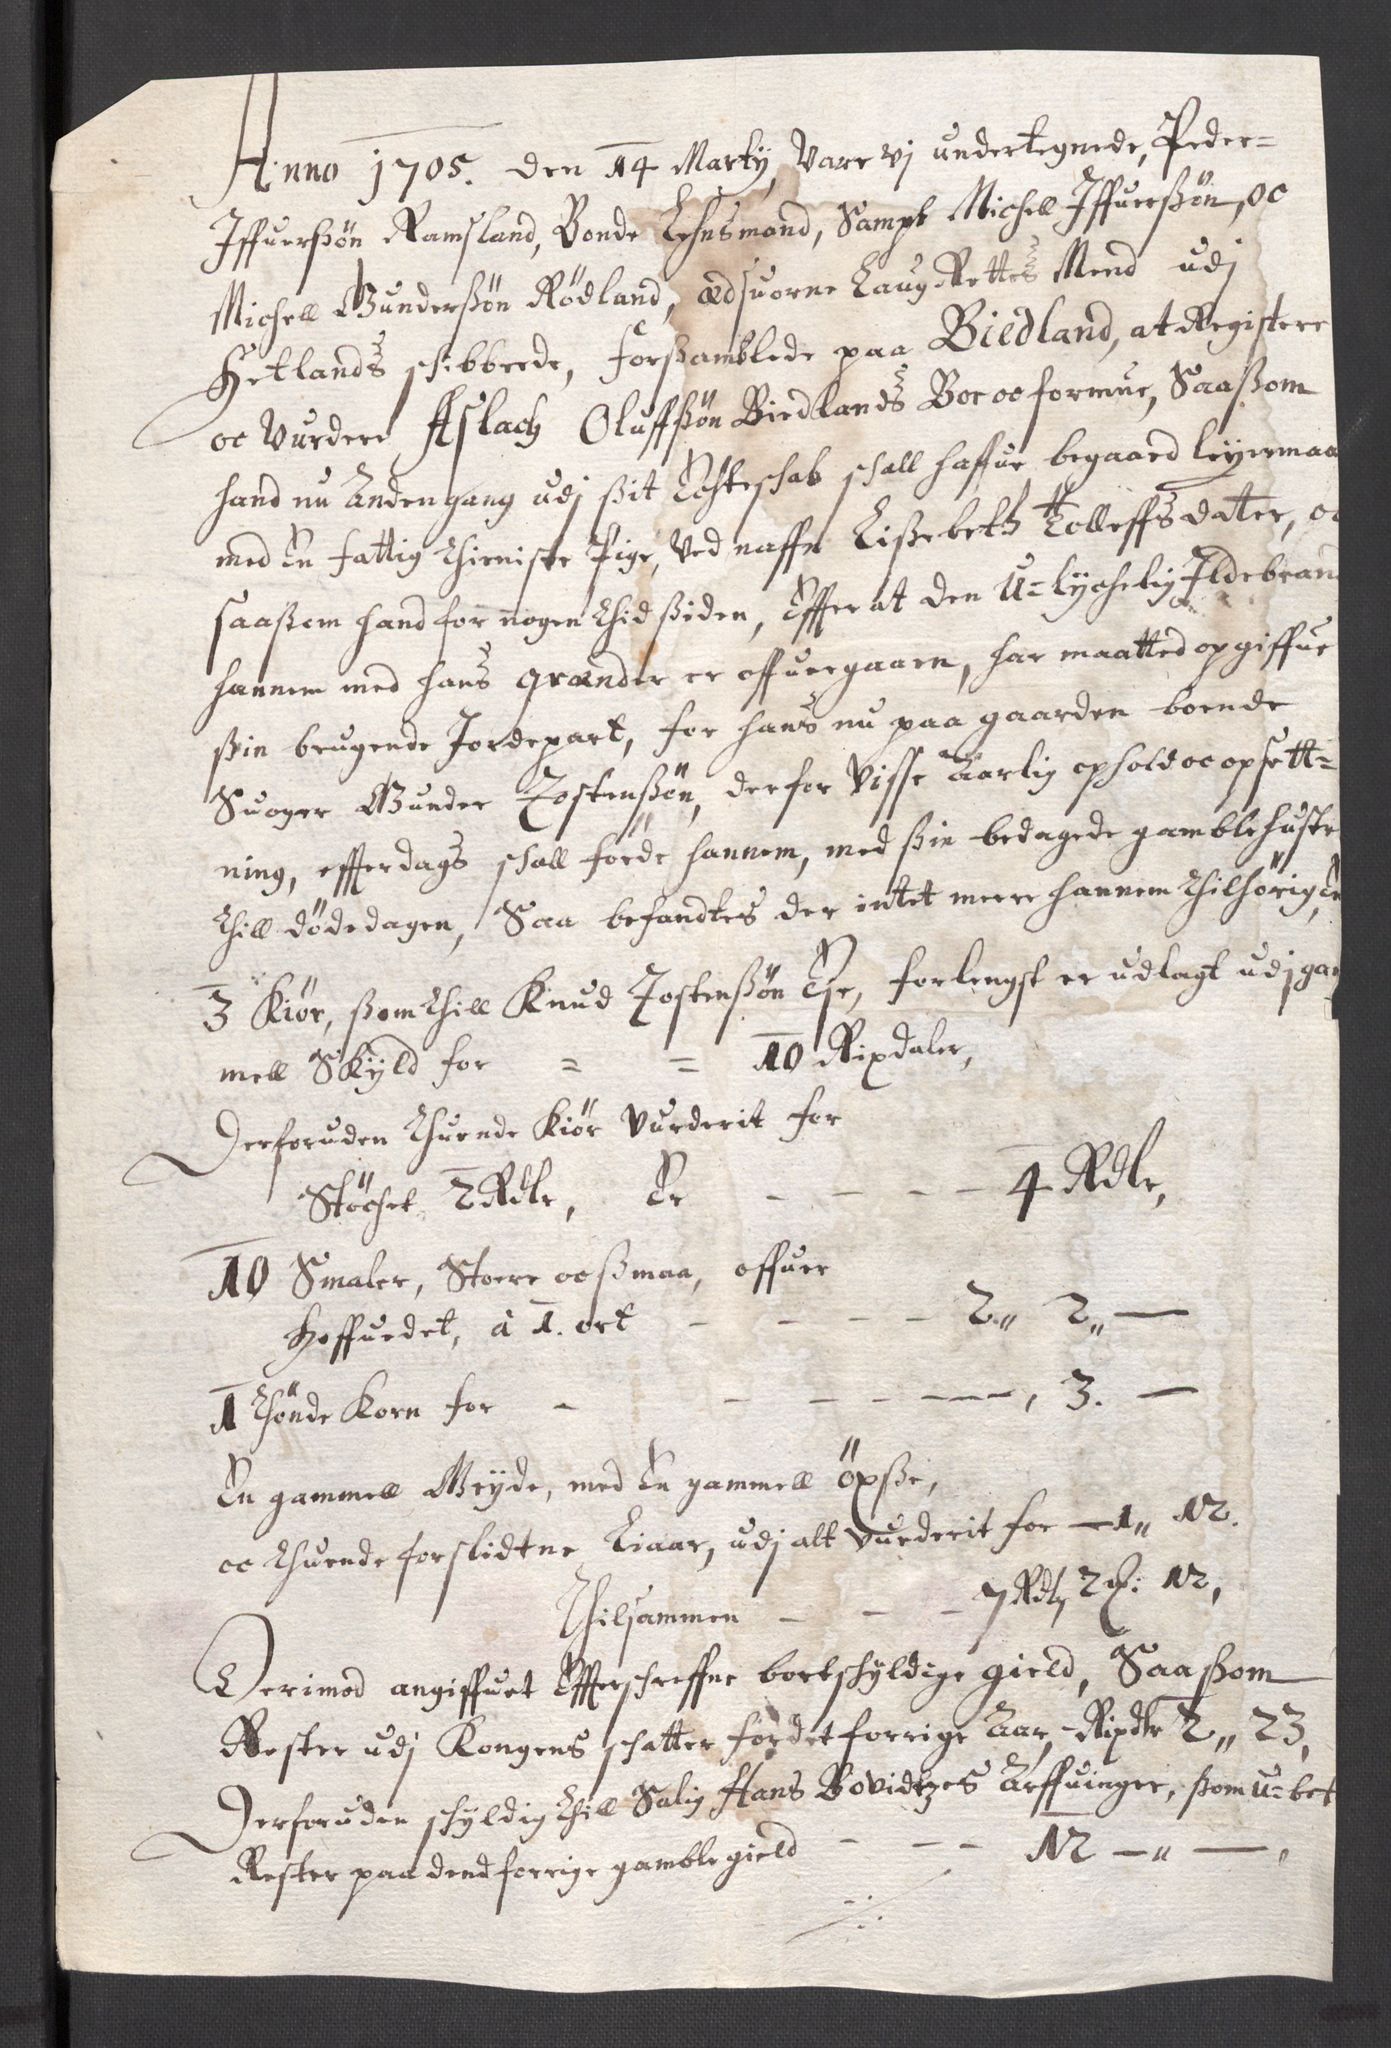 Anno 1705. den 14 Marty, Vare vj undertegnede, Peder=
Jffuerßön Ramsland, Bonde Lehnsmand, Sampt Michell Jffuerßön, oc
Michell Gunderßön Rödland, ædsuorne LaugRettes Mend udj
Hetlands schibbrede, forßamblede paa Biedland, at Registere
oc Vurdere Aslach Oluffßön Biedlands Boe oc formue, Saaßom
hand nu Anden gang udj ßit Echteschab schall haffue begaaed leyermaal
med En fattig thieniste Pige, Ved naffn Lißebeth Tolleffsdater, oc
saaßom hand for nogen thid ßiden, Effter at den U=lychelig Jldebrand
hannem med hans grander er offuergaaen, har maatted opgiffue
ßin brugende Jordepart, for hans nu paa gaarden boende
Suoger Gunder Jostenßön, derfor Visse Aarlig ophold oc opsett=
ning, effterdags schall föede hannem, med ßin bedagede gamble hustr
thill dödedagen, Saa befandtes der intet meere hannem thilhörig, En
3 Kiör, ßom thill Knud Jostenßön Eje, forlengst er udlagt udj gam
mell Skyld for = = 10 Rixdaler,
Derforuden thuende Kiör Vurderit for
Stöchet 2 Rdlr, Er - - - - 4 Rdlr,
10 Smaler, Stoere oc ßmaa, offuer
Hoffuedet, à 1. ort - - - - 2„ 2„ —
1 thönde Korn for - - - - — , 3. —
En gammell Gryde, med En gammell öxße,
oc thuende forslidtne Liaar, udj alt Vurderit for — 1„ 12.
Thilsammen - - - 7 Rdlr 2 ℳ: 12,
Derimod angiffuet Effterschreffne bortschyldige gield, Saaßom
Rester udj Kongens schatter for det forrige Aar, - Rixdlr 2„ 23,
Derforuden schyldig thill Salig Hans Bovidtzes Arffuinger, ßom U=bet
Rester paa dend forrige gamble gield - - - 12 — „ — ,